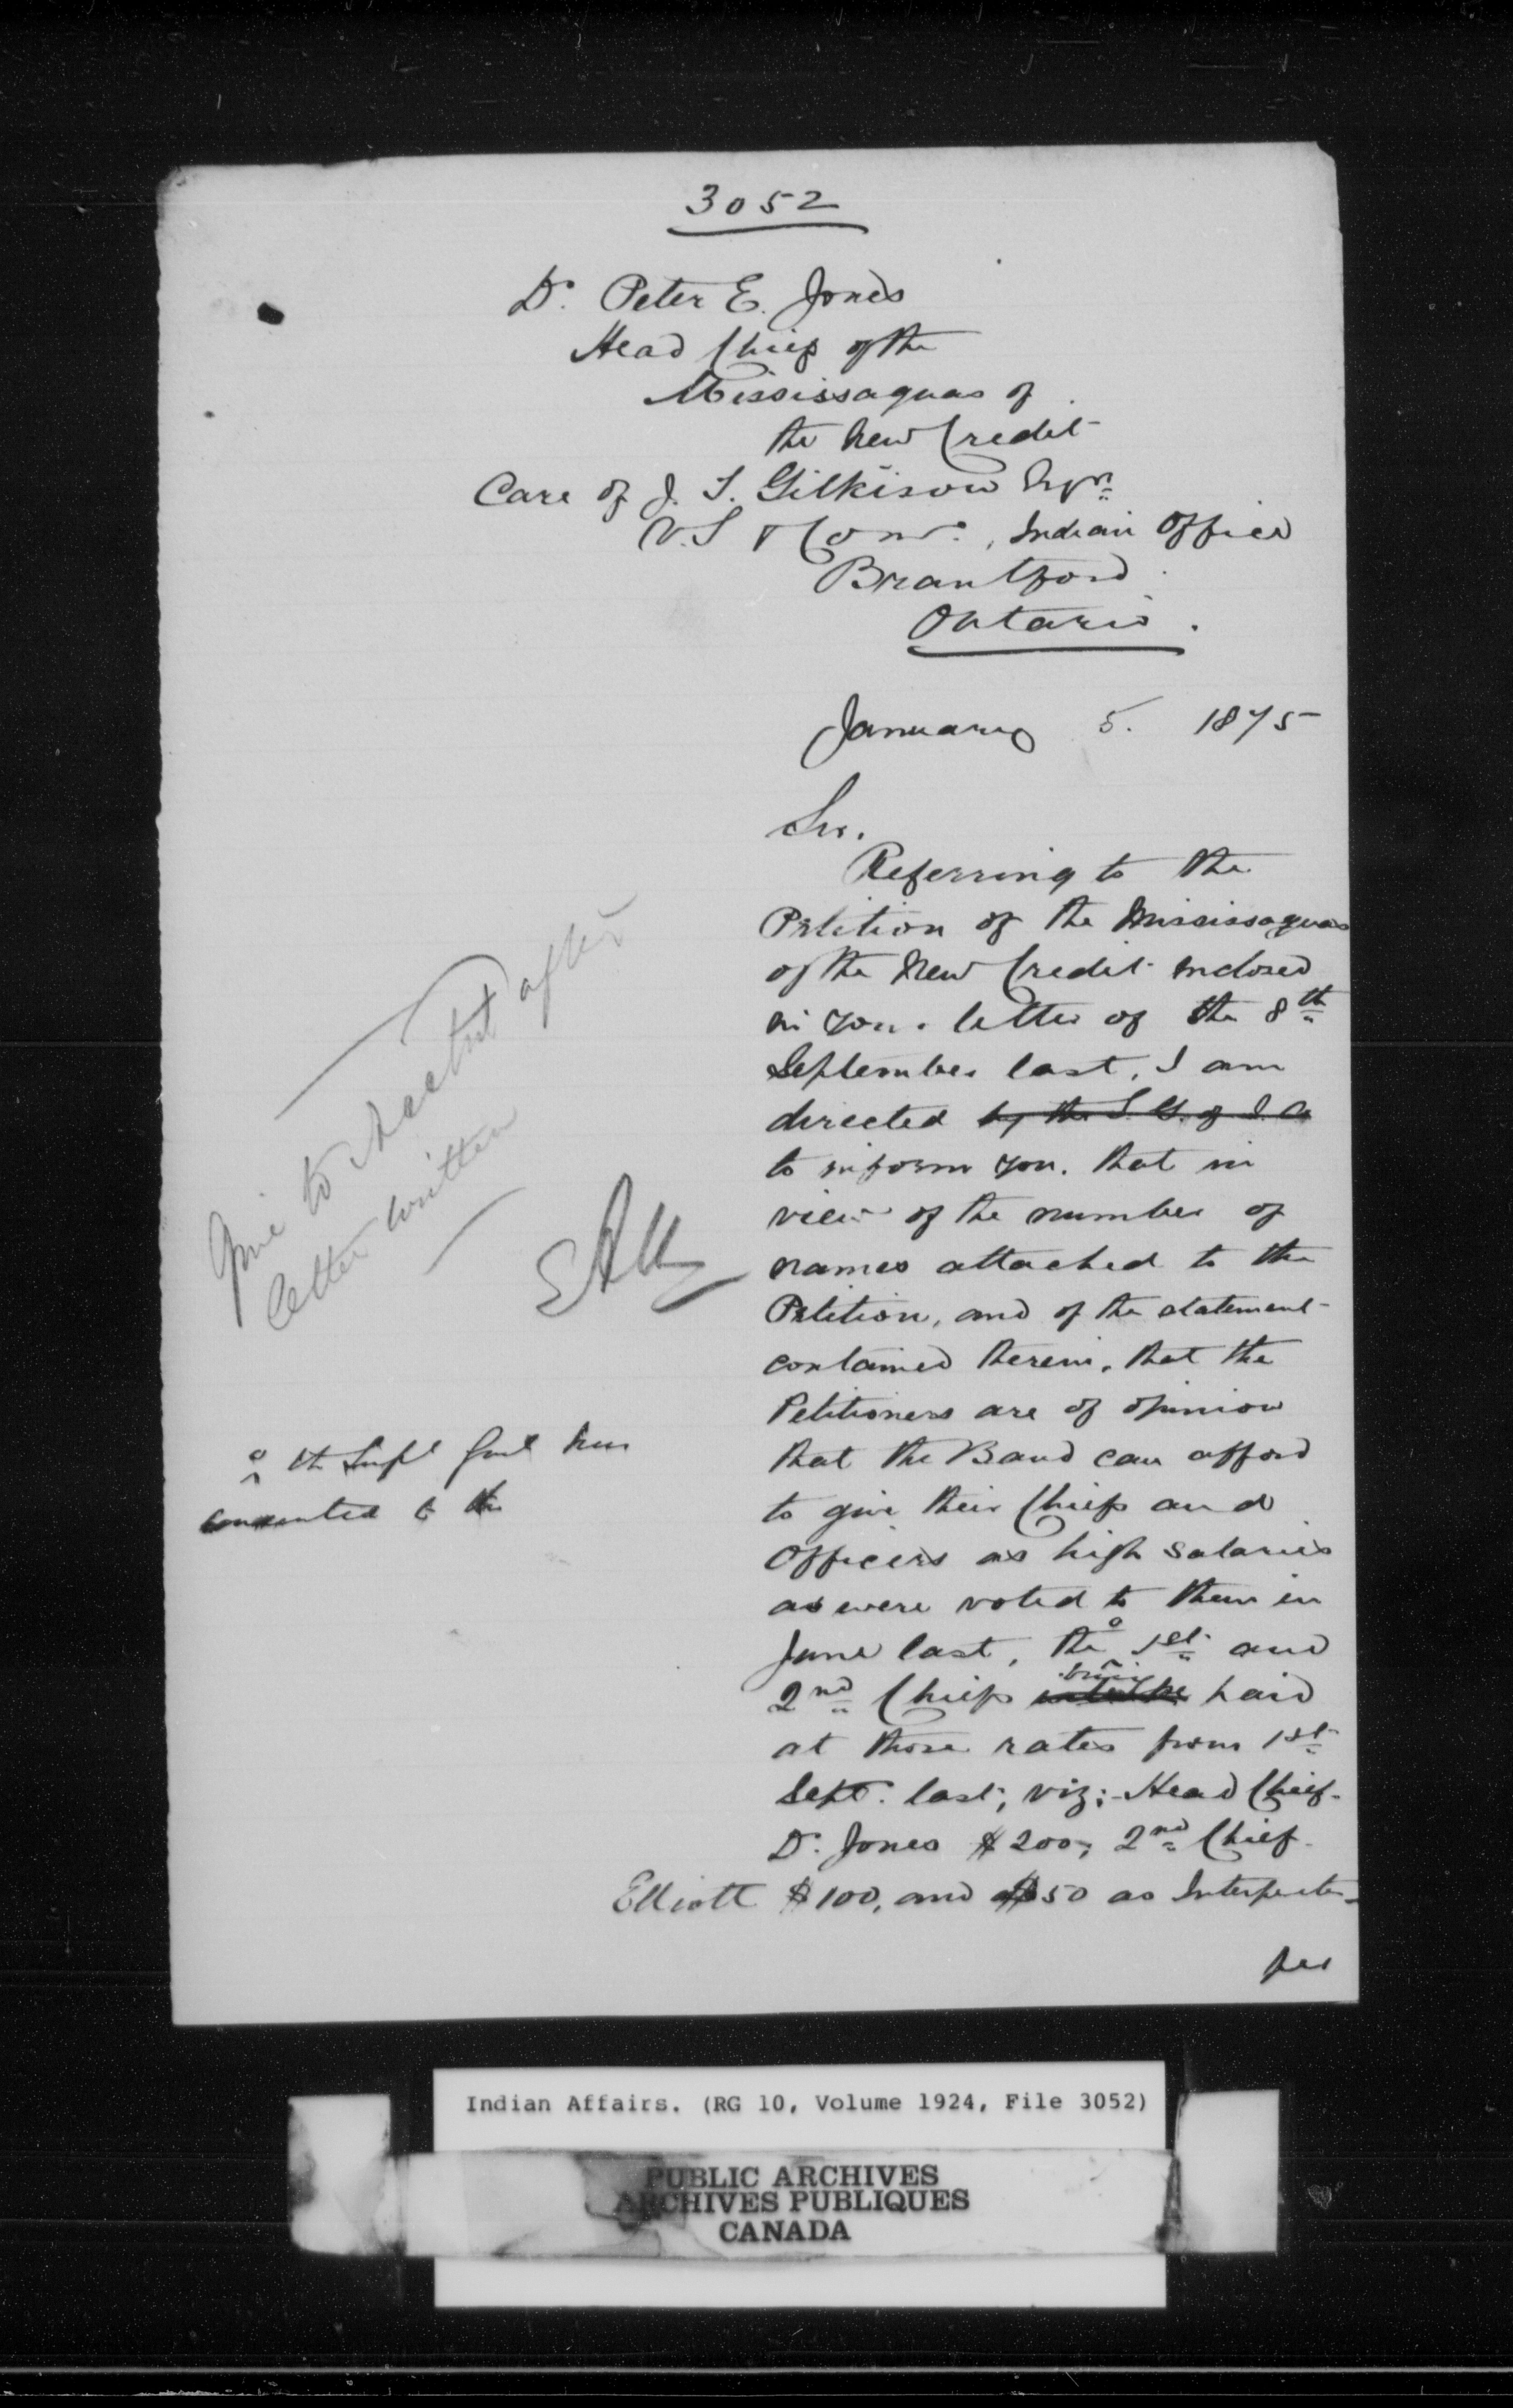 3052
Dr. Peter E. Jones
Head Chief of the
Mississaguas of
the New Credit
Care of J. T. Gilkison Esqre
V.S & Comr., Indian Office
Brantford
Ontario.
January 5. 1875
Sir.
Referring to the
Petition of the Mississaguas
of the New Credit enclosed
in your letter of the 8th
September last, I am
directed by the S. G. of I. A
to inform you, that in
view of the number of
names attached to the
Petition, and of the statement
contained therein, that the
Petitioners are of opinion
that the Band can afford
to give their Chiefs and
Officers as high salaries
as were voted to them in
June last, the 1st and
2nd Chiefs being paid
at those rates from 1st
Sept. last, viz:- Head Chief
Dr. Jones $200, 2nd Chief
Elliott $100, and $50 as Interpreter
per
Give to Acctnt after
letter written
the Supt Genl has
consented to the
Indian Affairs. (RG 10, Volume 1924, File 3052)
PUBLIC ARCHIVES
ARCHIVES PUBLIQUES
CANADA